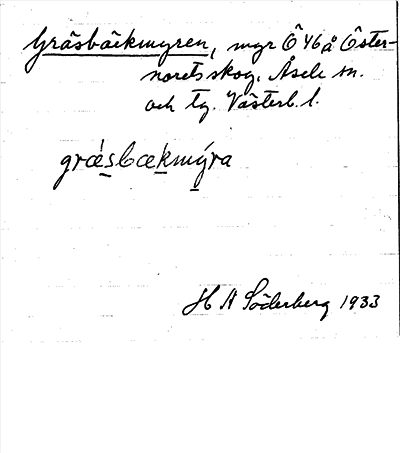 Gräsbäckmyren, myr Ö46 å Öster-
norets skog. Åsele sn.
och tg. Västerb. l.
græsbækmýra
H A Söderberg 1933